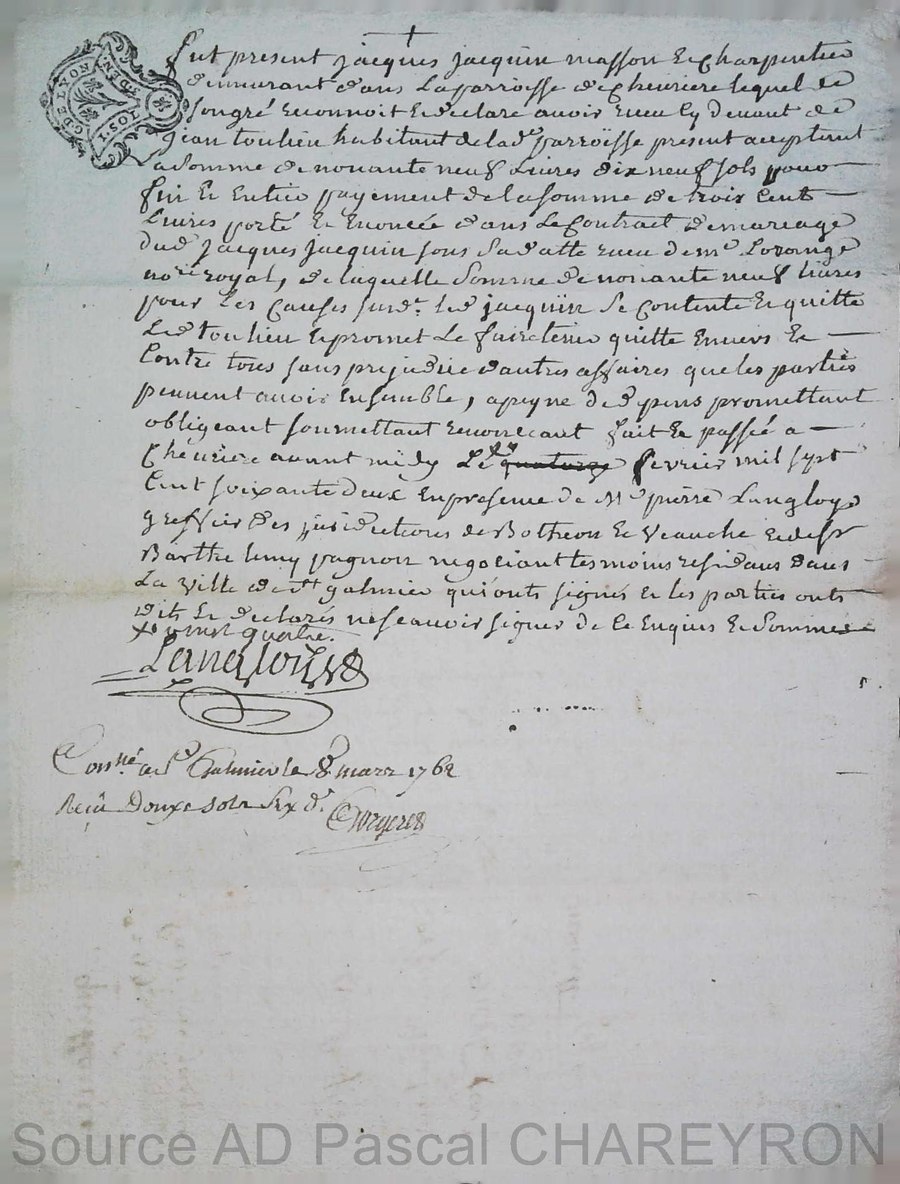 G.DE LYON
TI.DEN.
TOS.I
fut present jacques jacquin masson Et Charpentier
demeurant dans La parroisse de Cheuriere lequel de
son gré Reconnoit Et declare avoir Receu Cy deuant de
jean toulieu habitant de lad. parroisse present acceptant
a Somme de nonante neuf Livres dix neuf sols pour
fin Et Entier payement de la somme de trois Cent
Livres porté Et Enoncée dans Le Contrat de mareage
dud jacques jacquin sous Sa datte receu de me Loronge
nore royal, de laquelle Somme de nonante neuf livres
pour Les Causes susd. led jacquin Se Contente Et quitte
Led toulieu Et promet Le faire tenir quitte Enuers Et
Contre tous sans prejudice dautres affaires que les parties
peuuent avoir Ensemble, a peyne de depens promettant
obligeant soumettant renoncant fait Et passée a
Cheuriere auant midy Le quatorze feurier mil sept
Cent soixante deux En presence de Me pierre Langloys
greffier des jurisdictions de Botheon Et Veauche Et de sr
Barthelemy pagnon negotiant tesmoins residans dans
La Ville de St galmier qui onts signes Et les parties onts
dits Et declarés ne scauoir signer de Ce Enquis Et Sommes
vingt quatre.
Langloys
Conllé a St Galmier le 8 mars 1762
Reçu Douze sols six d.
Source AD Pascal CHAREYRON